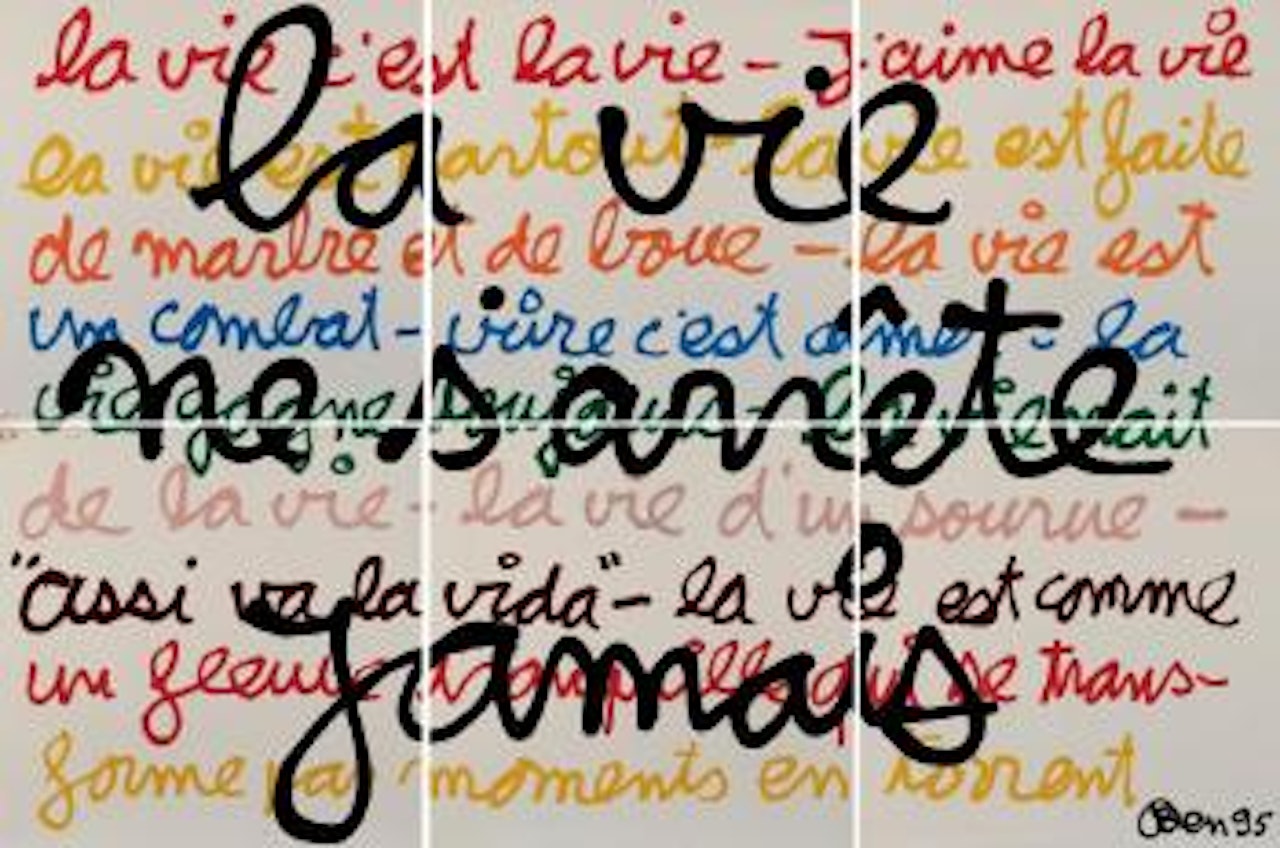 la vie
ne s arrête
jamais
la vie c'est la vie - J'aime la vie
la vie est partout - la vie est faite
de marbre et de boue - la vie est
un combat - vivre c'est aimer - la
vie gagne toujours - la vie nait
de la vie - la vie d'un sourire -
"assi va la vida" - la vie est comme
un fleuve tranquille qui se trans-
forme par moments en torrent
Ben 95